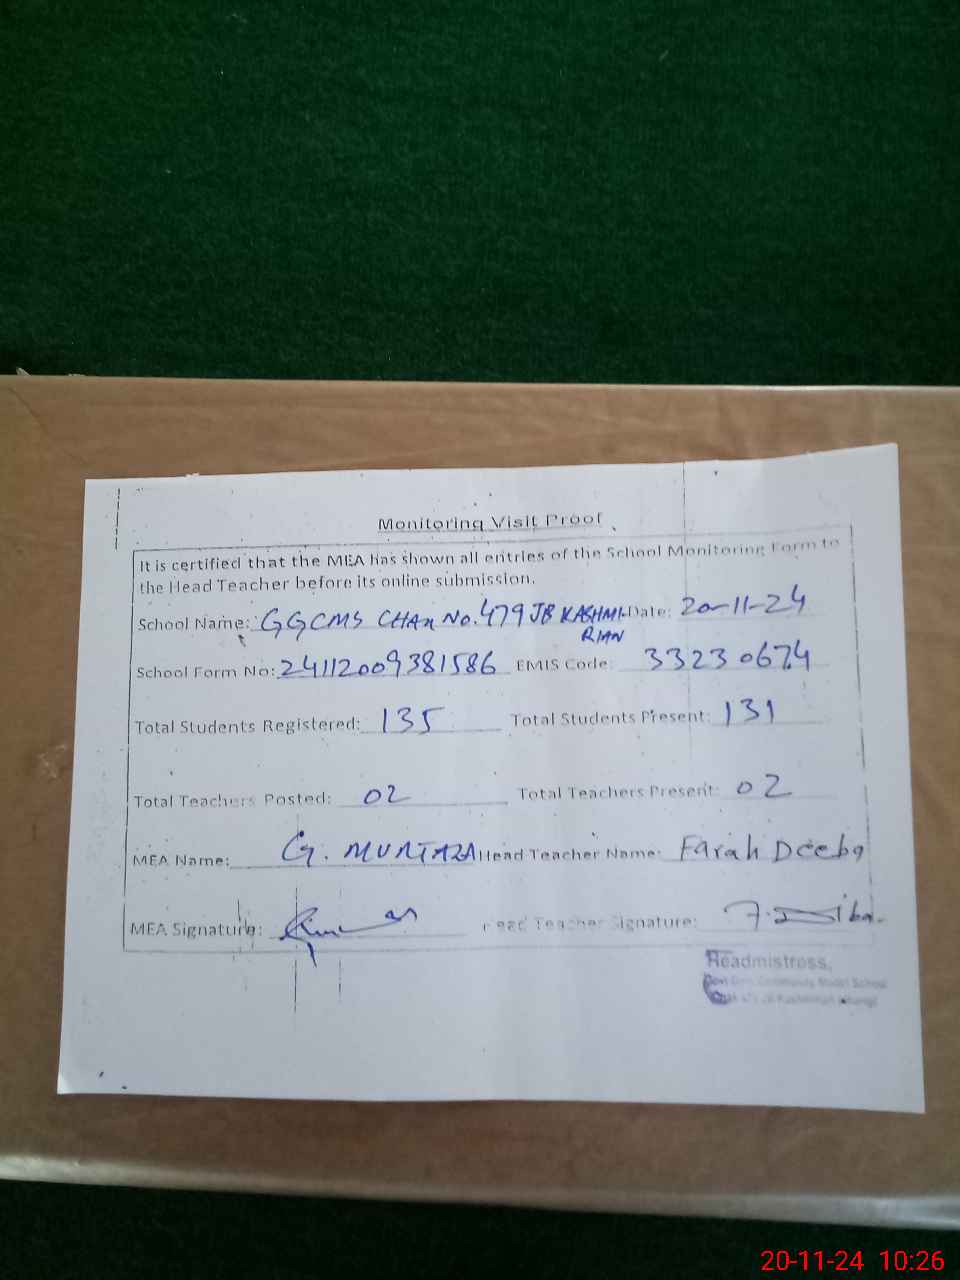 Monitoring Visit Proof
It is certified that the MEA has shown all entries of the School Monitoring Form to
the Head Teacher before its online submission.
School Name: GGCMS CHAK No. 479 JB KASHMI- Date: 20-11-24
RIAN
School Form No: 24112009381586 EMIS Code: 33230674
Total Students Registered: 135 Total Students Present: 131
Total Teachers Posted: 02 Total Teachers Present: 02
MEA Name: G. MURTAZA Head Teacher Name: Farah Deeba
MEA Signature: Head Teacher Signature: F. Diba.
Headmistress,
Community Model School
20-11-24 10:26